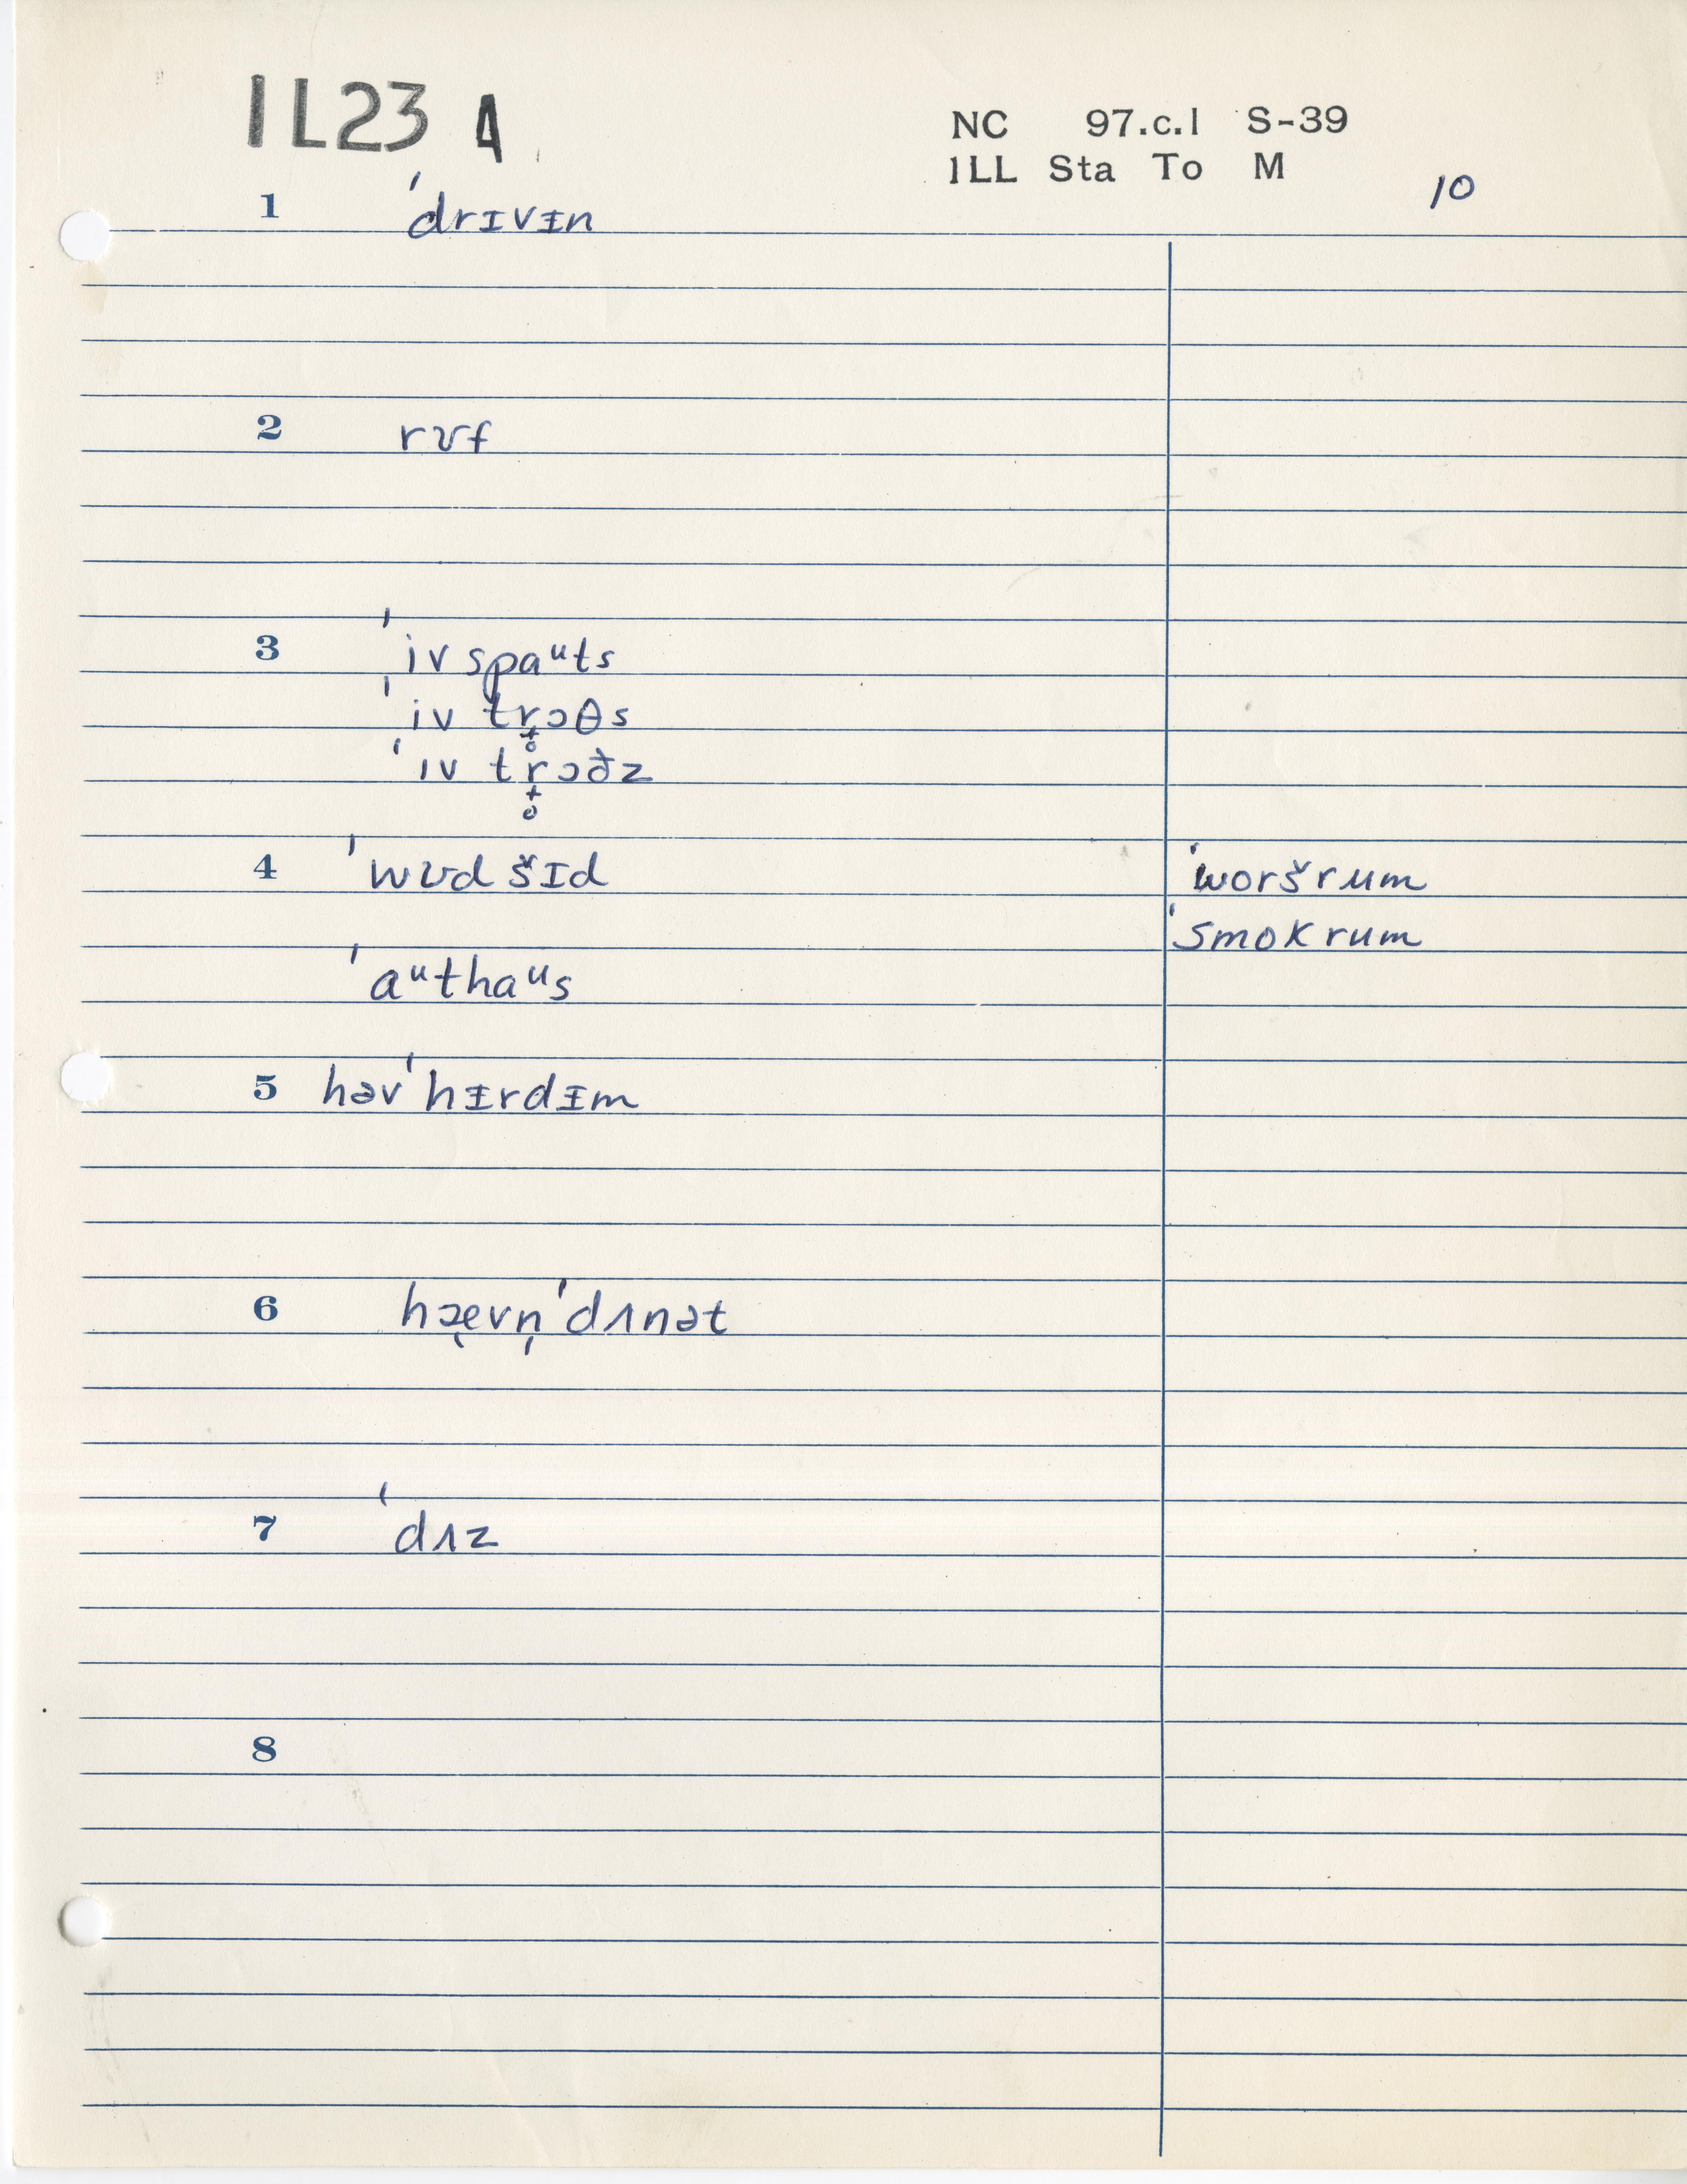 IL23 A
NC 97.c.1 S-39
ILL Sta To M
10
1 ˈdrɪvᵻn
2 rʊf
3 ˈiv spaᵘts
ˈiv tr̥̟ɔθs
ˈiv tr̥̟ɔðz
4 ˈwʊd šɪd ˈworšrum
ˈsmokrum
ˈaᵘthaᵘs
5 həvˈhᵻrdᵻm
6 hæ̖vn̩ˈdʌnət
7 ˈdʌz
8